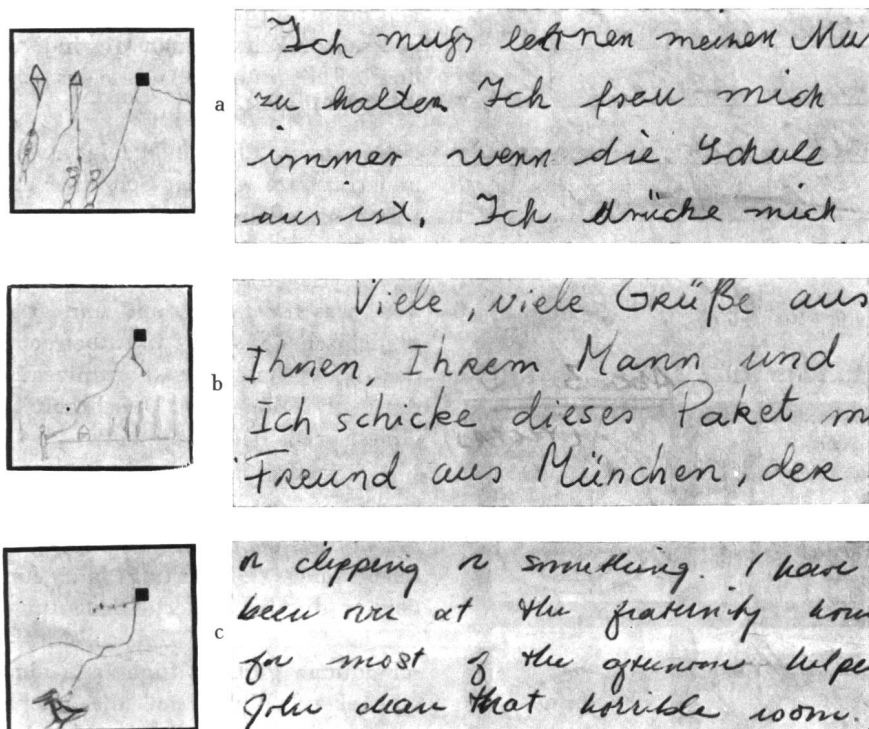 a
Ich mußs lernen meinen Mu
zu halten Ich freu mich
immer wenn die Schule
aus ist. Ich drücke mich
b
Viele, viele Grüße aus
Ihnen, Ihrem Mann und
Ich schicke dieses Paket m
Freund aus München, der
c
or clipping or something. I have
been over at the fraternity hou
for most of the afternoon helpe
John clean that horrible room.